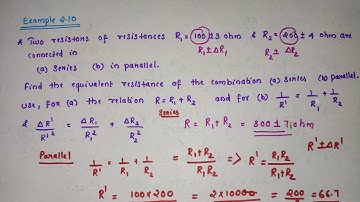 Example 2.10
* Two resistors of resistances R₁ = 100 ± 3 ohm & R₂ = 200 ± 4 ohm are
R₁ ± ΔR₁ R₂ ± ΔR₂
connected in
(a) Series (b) in parallel.
Find the equivalent resistance of the combination (a) series (b) parallel.
use, for (a) the relation R = R₁ + R₂ and for (b) 1/R' = 1/R₁ + 1/R₂
& ΔR'/R'² = ΔR₁/R₁² + ΔR₂/R₂²
Series
R = R₁ + R₂ = 300 ± 7 ohm
Parallel
1/R' = 1/R₁ + 1/R₂ = R₁+R₂/R₁R₂ => R' = R₁R₂/R₁+R₂
R' ± ΔR'
R' = 100 × 200 = 2 × 10000 = 200 = 66.7